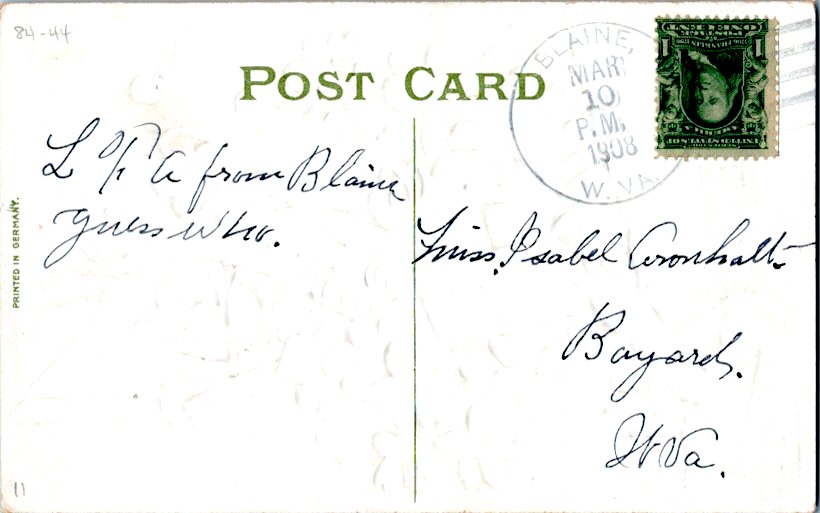 84-44
POST CARD
BLAINE,
MAR
10
P.M.
1908
W. VA.
UNITED STATES OF AMERICA
POSTAGE
ONE CENT
1 1
L of A from Blaine
guess who.
PRINTED IN GERMANY.
Miss. Isabel Aronhalt
Bayard.
W Va.
11